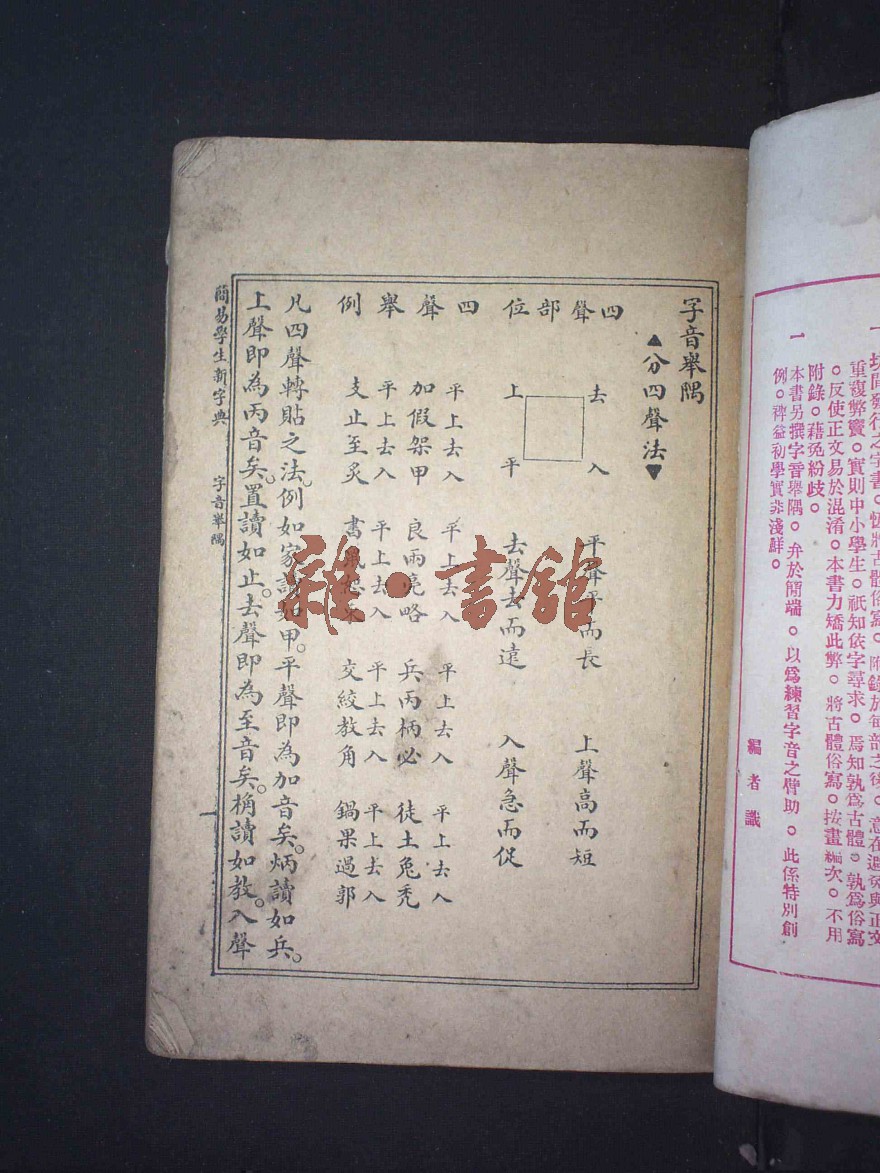 一 坊間發行之字書。恆將古體俗寫。附錄於每部之後。意在避免與正文
重複弊竇。實則中小學生。祇知依字尋求。焉知孰爲古體。孰爲俗寫
。反使正文易於混淆。本書力矯此弊。將古體俗寫。按畫編次。不用
附錄。藉免紛歧。
一 本書另撰字音舉隅。弁於簡端。以爲練習字音之臂助。此係特別創
例。裨益初學實非淺鮮。
編者識
字音舉隅
▲分四聲法▼
四聲部位
去 入
上 平
平聲平而長 上聲高而短
去聲去而遠 入聲急而促
四聲舉例
平上去入 平上去入 平上去入 平上去入
加假架甲 良兩亮略 兵丙柄必 徒土兔禿
平上去入 平上去入 平上去入 平上去入
支止至炙 書 交絞教角 鍋果過郭
凡四聲轉貼之法。例如家讀如甲。平聲即為加音矣。炳讀如兵。
上聲即為丙音矣。置讀如止。去聲即為至音矣。桷讀如教。入聲
簡易學生新字典 字音舉隅 一
雜·書館